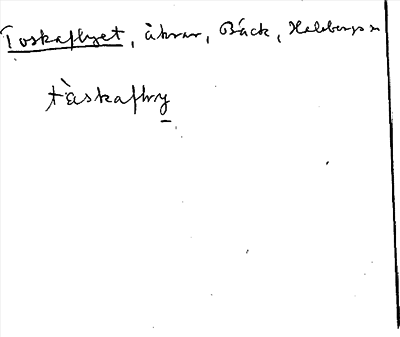 Toskaflyet, åkrar, Bäck, Habbergs sn
tàskaflry